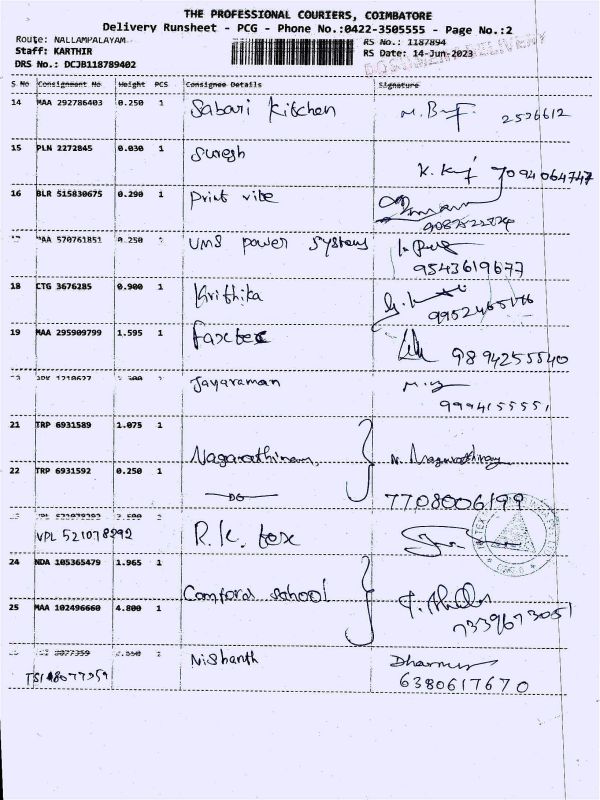 THE PROFESSIONAL COURIERS, COIMBATORE
Delivery Runsheet - PCG - Phone No.:0422-3505555 - Page No.:2
Route: NALLAMPALAYAM
RS No.: 1187894
Staff: KARTHIR
RS Date: 14-Jun-2023
DRS No.: DCJB118789402
S No Consignment No Weight PCS Consignee Details Signature
14 MAA 292786403 0.250 1 Sabari Kitchen 2526612
15 PLN 2272845 0.030 1 Suresh 7094064747
16 BLR 515830675 0.290 1 Print vibe
MAA 570761851 0.250 UMS power systems
9543619677
18 CTG 3676285 0.900 1 Krithika
19 MAA 295909799 1.595 1 9894255540
Jayaraman
9994155551
21 TRP 6931589 1.075 1
Nagarathinam
22 TRP 6931592 0.250 1
DG 7708006199
VPL 521078992 R.K. fox
24 NDA 105365479 1.965 1
school
25 MAA 102496660 4.800 1
7339673051
Nishanth
6380617670